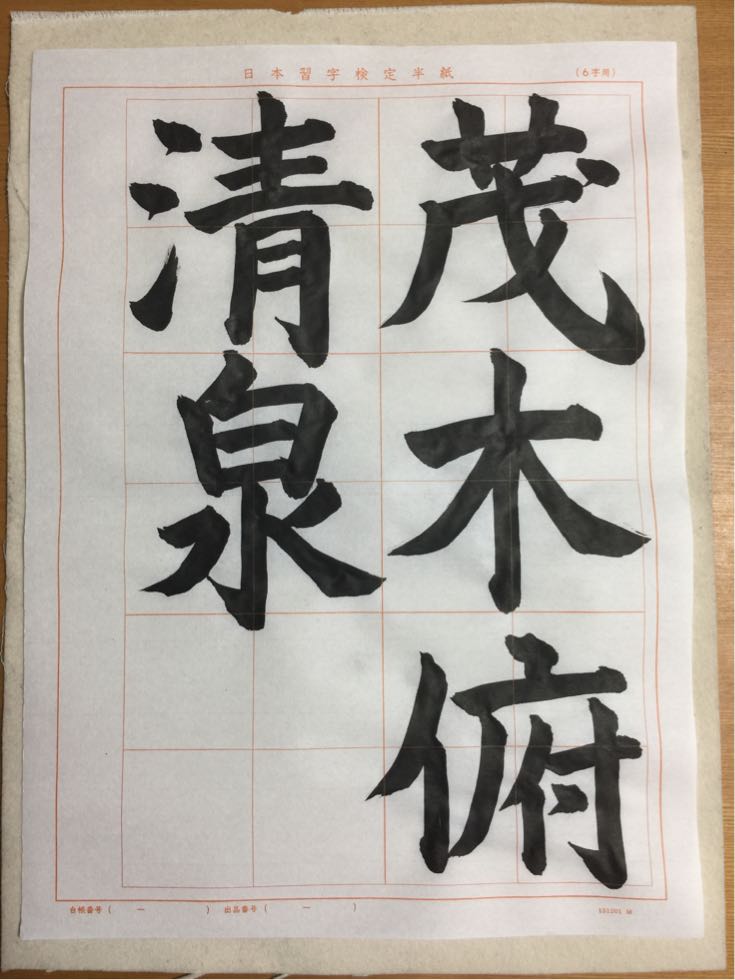 日本習字検定半紙
（6字用）
茂木俯
清泉
台帳番号（　ー　）　出品番号（　ー　）